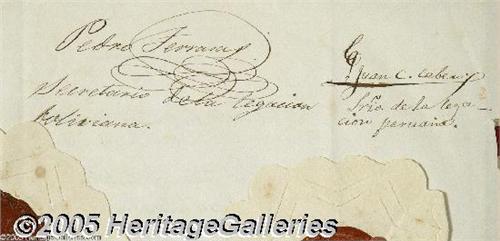 Pedro Terrazas
Secretario de la legacion
boliviana.
Juan C. Cabero
Srio. de la lega-
cion peruana.
©2005 HeritageGalleries